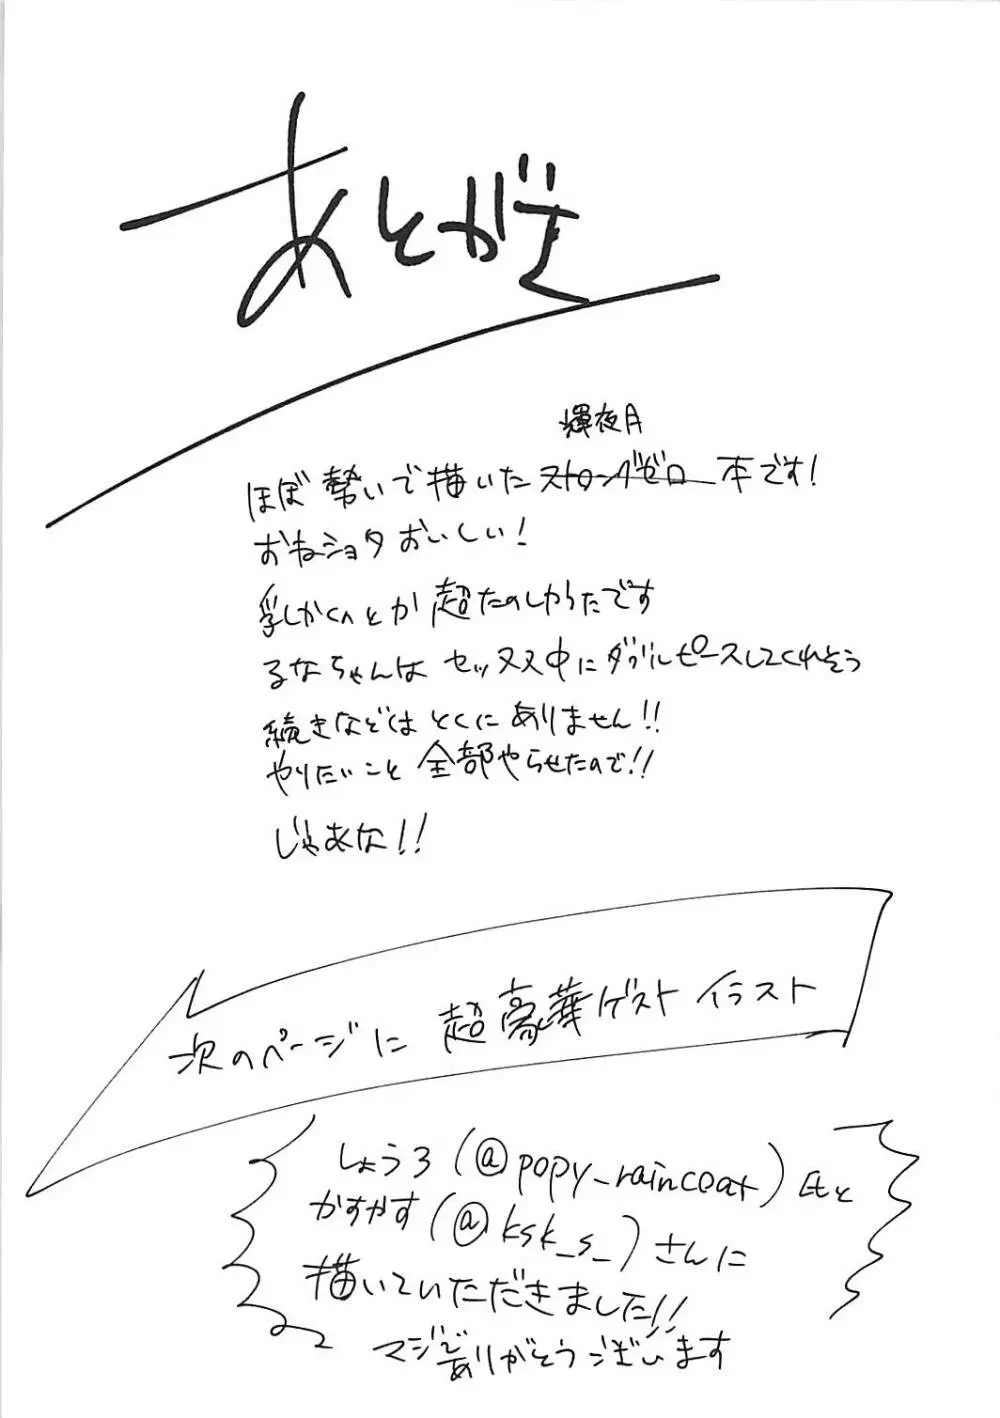 あとがき
輝夜月
ほぼ勢いで描いたストロングゼロ本です!
おねショタおいしい!
乳しかくんとか超たのしかったです
るなちゃんは セックス中にダブルピースしてくれそう
続きなどはとくにありません!!
やりたいこと全部やらせたので!!
じゃあな!!
次のページに 超豪華ゲストイラスト
しょうろ(@popy_raincoat)氏と
かすかす(@ksk_s_)さんに
描いていただきました!!
マジでありがとうございます